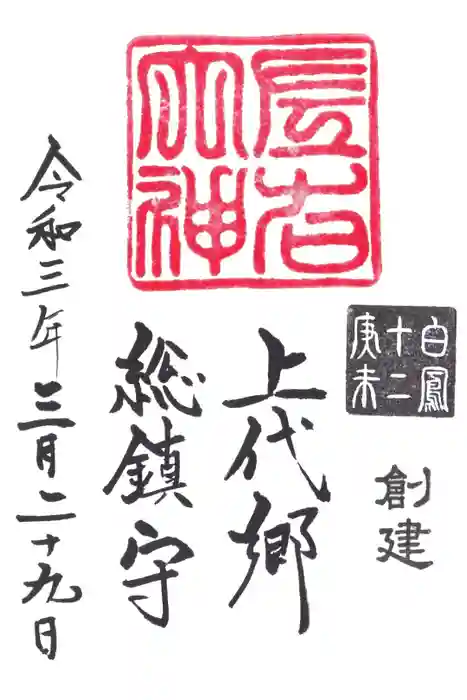 白鳳
十二
庚未
創建
上代郷
総鎮守
令和三年三月二十九日